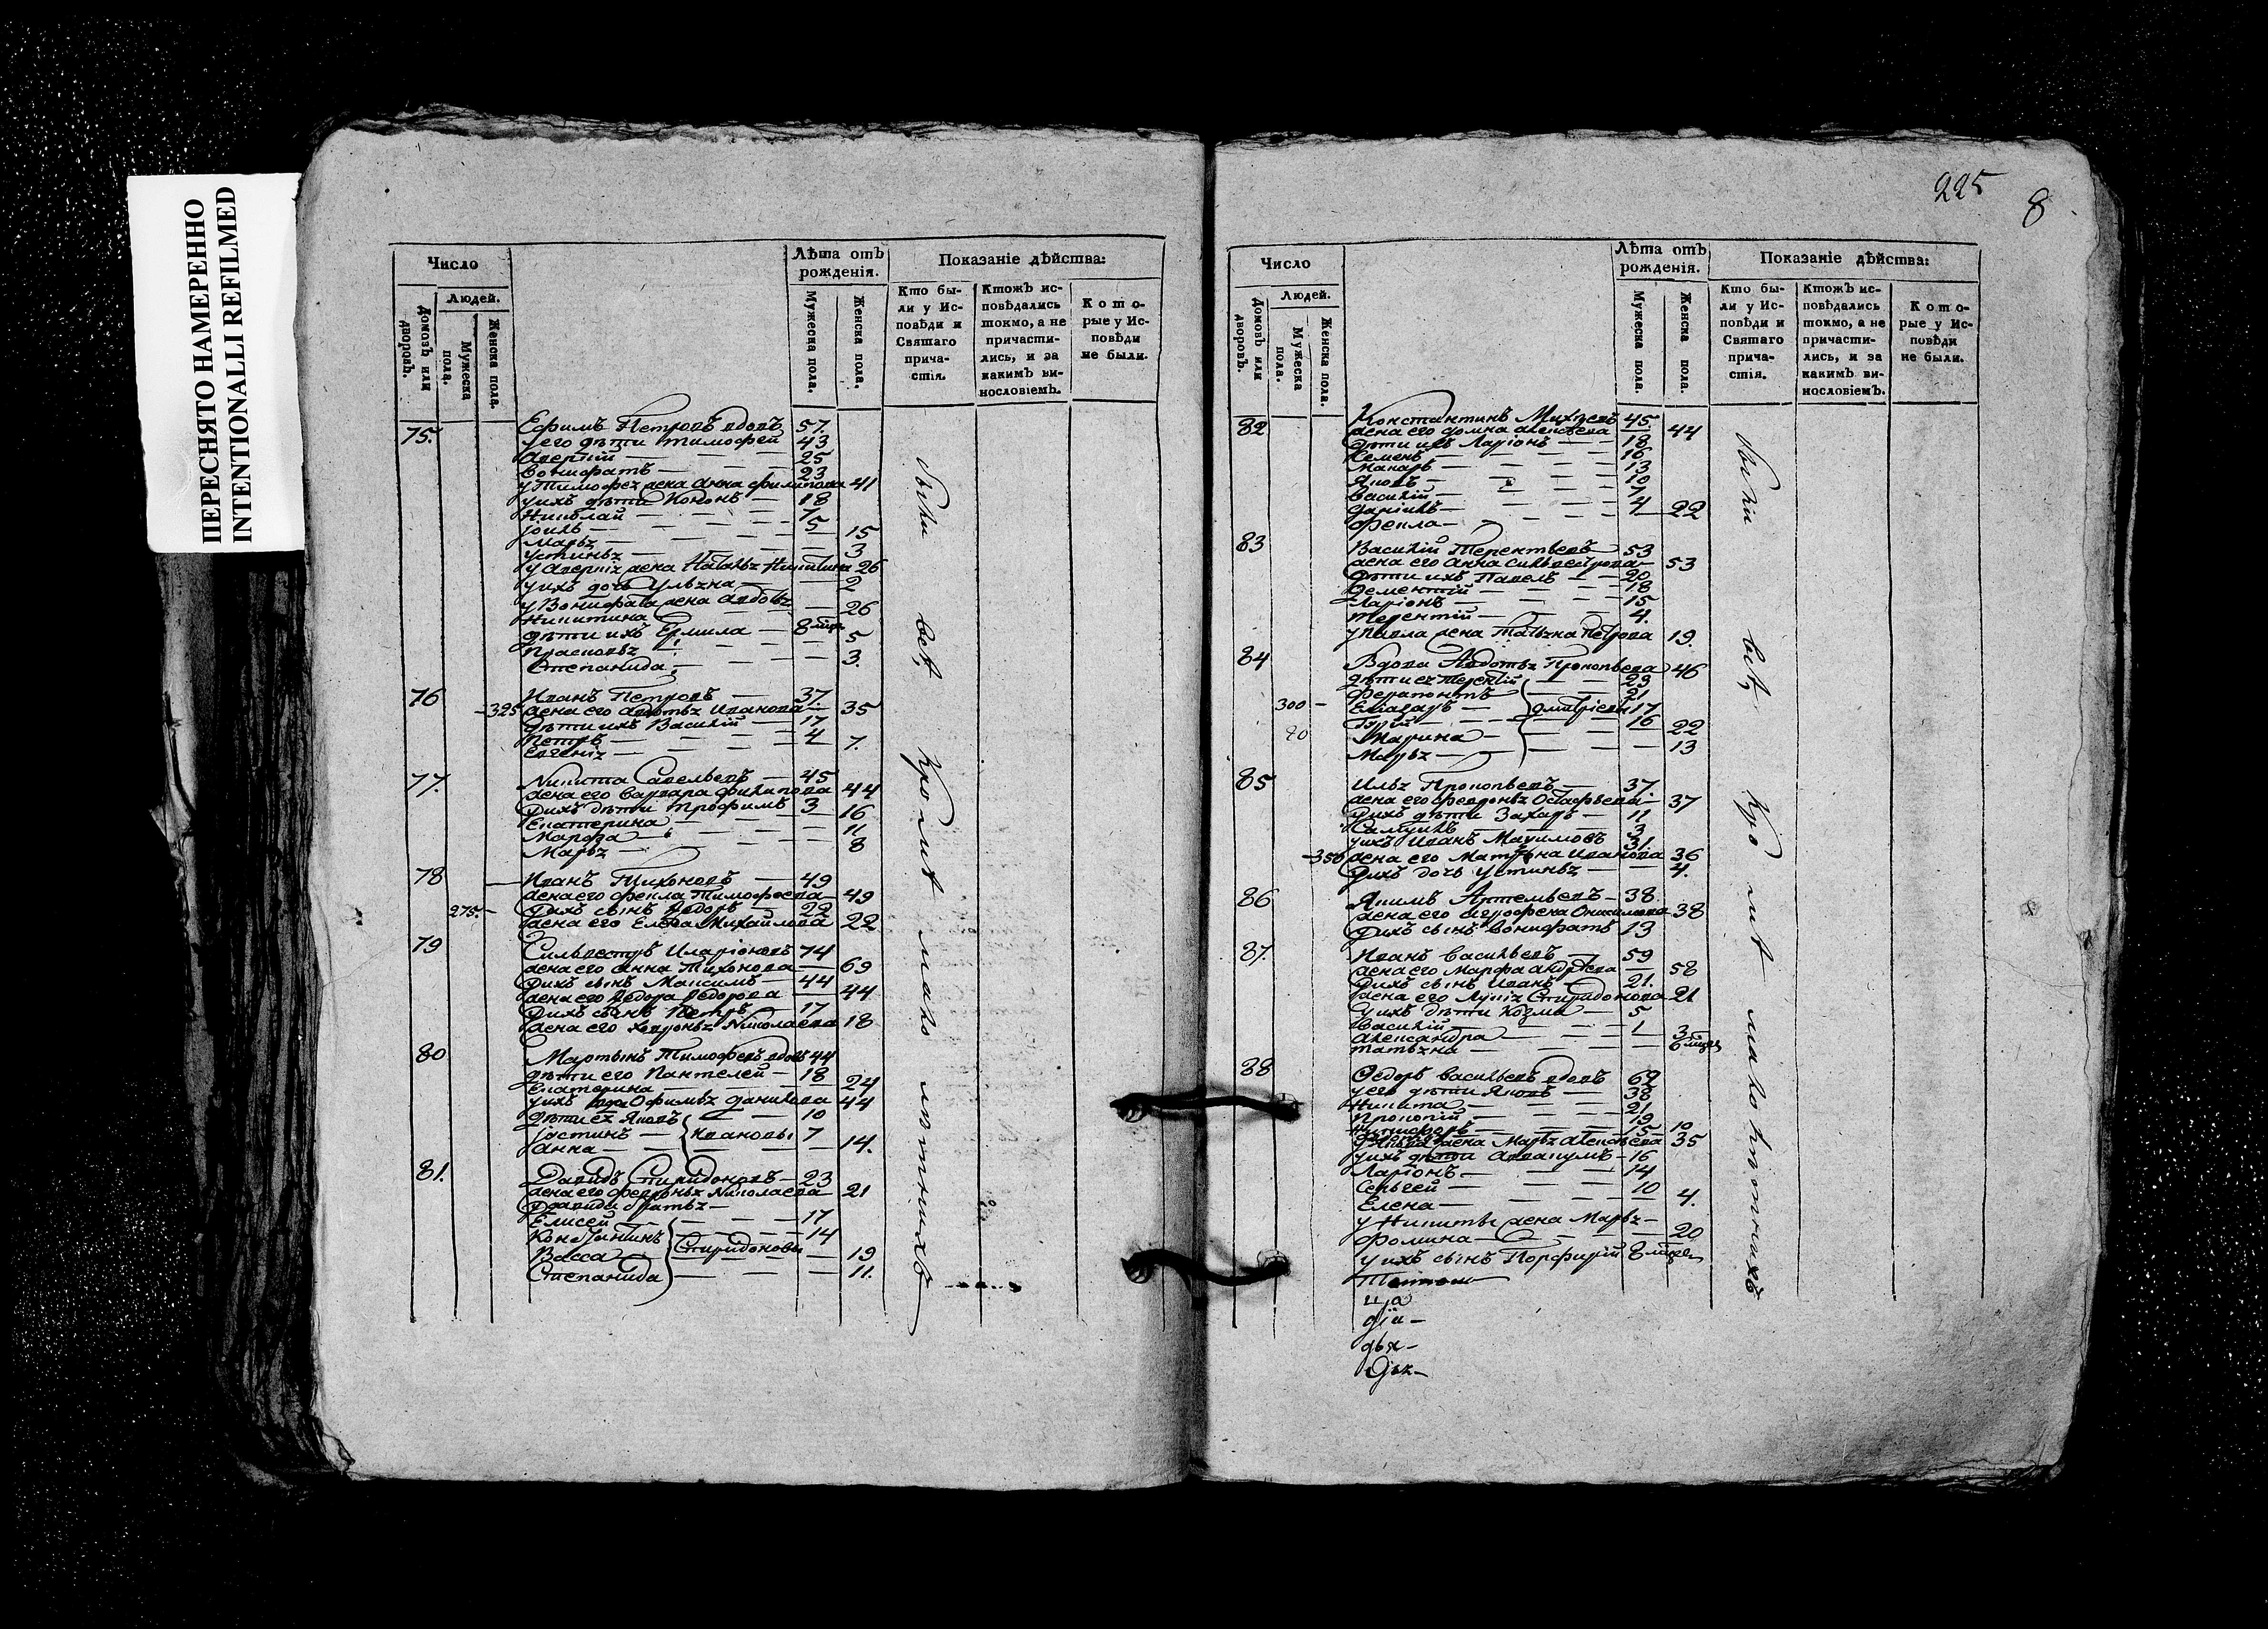 ПЕРЕСНЯТО НАМЕРЕННО
INTENTIONALLI REFILMED
Число
Людей.
Домовъ или дворовъ.
Мужеска пола.
Женска пола.
Лѣта отъ рожденія.
Мужеска пола.
Женска пола.
Показаніе дѣйства:
Кто были у Исповѣди и Святаго причастія.
Ктожъ исповѣдались токмо, а не причастились, и за какимъ винословіемъ.
Которые у Исповѣди не были.
75. Ефимъ Петровъ вдовъ 57.
у его дѣти Тимофей 43
Аверкій — 25
Вонифатъ — 23
у Тимофея жена Анна Филипова 41
у ихъ дѣти Кононъ — 18
Николай — 7
Іоиль — 5
Марья — 15
Устинья — 3
у Аверкія жена Наталья Никитина 26
у ихъ дочь Ульяна — 2
у Вонифата жена Авдотья
Никитина — 26
дѣти ихъ Ермила — 8 мѣся.
Прасковья — 5
Степанида — 3.
76 Иванъ Петровъ — 37.
325 жена его Авдотья Иванова — 35
Дѣти ихъ Василій — 17
Петръ — 4
Евгенія — 7.
77. Никита Савельевъ — 45
жена его Варвара Филипова 44
У ихъ дѣти Трофимъ — 3
Екатерина — 16
Марфа — 11
Марья — 8
78 Иванъ Тихоновъ — 49
жена его Фекла Тимофеева — 49
275. У ихъ сынъ Федоръ — 22
жена его Елена Михайлова 22
79 Сильвестръ Иларіоновъ 74
жена его Анна Тихонова — 69
У ихъ сынъ Максимъ — 44
жена его Федора Федорова — 44
У ихъ сынъ Петръ — 17
жена его Хавронья Николаева 18
80 Мартынъ Тимофеевъ вдовъ 44
дѣти его Пантелей — 18
Екатерина — 24
у ихъ Офимья Данилова 44
дѣти ея Яковъ — 10
Іустинъ — Ивановы 7
Анна — 14.
81. Давидъ Спиридоновъ — 23
жена его Февронья Николаева — 21
Давида братья —
Елисей — 17
Констянтинъ — 14
Васса — Спиридоновы — 19
Степанида — 11.
были всѣ, кромѣ малолѣтнихъ
225
8
Число
Людей.
Домовъ или дворовъ.
Мужеска пола.
Женска пола.
Лѣта отъ рожденія.
Мужеска пола.
Женска пола.
Показаніе дѣйства:
Кто были у Исповѣди и Святаго причастія.
Ктожъ исповѣдались токмо, а не причастились, и за какимъ винословіемъ.
Которые у Исповѣди не были.
82 Константинъ Михѣевъ 45.
жена его Домна Алексѣева 44
Дѣти ихъ Ларіонъ — 18
Семенъ — 16
Макаръ — 13
Яковъ — 10
Василій — 7
Даніилъ — 4
Фекла — 22
83 Василій Терентьевъ — 53
жена его Анна Сильвестрова — 53
Дѣти ихъ Павелъ — 20
Дементій — 18
Ларіонъ — 15
Терентій — 4.
у Павла жена Татьяна Петрова 19.
84 Вдова Авдотья Прокопьева 46
дѣти ея Терентій — 23
Ферапонтъ — 21
300 — Еліазаръ — Дмитріевы 17
Гурій — 16
80 Марина — 22
Марья — 13
85 Илья Прокопьевъ — 37.
жена его Февронья Остафьева — 37
У ихъ дѣти Захаръ — 11
Самуилъ — 3
у ихъ Иванъ Максимовъ 31.
350 жена его Матрона Иванова 36
У ихъ дочь Устинья — 4.
86 Якимъ Артемьевъ — 38.
жена его 38
У ихъ сынъ Вонифатъ 13
87. Иванъ Васильевъ — 59
жена его Марфа Андрѣева — 58
У ихъ сынъ Иванъ — 21.
жена его Лукія Спиридонова 21
У ихъ дѣти Козма — 5
Василій — 1
Александра — 3
Татьяна — 6 мѣсяц
88 Федоръ Васильевъ вдовъ 62
у его дѣти Яковъ — 38
Никита — 21
Прокопій — 19
Никифоръ — 15 10
у Якова жена Марья Алексѣева 35
у ихъ дѣти Аввакумъ — 16
Ларіонъ — 14
Сергей — 10
Елена — 4.
у Никиты жена Марья —
Фомина — 20
у ихъ сынъ Порфирій 8 мѣсец
ца
дiи —
дья —
Дья —
были всѣ, кромѣ малолѣтнихъ